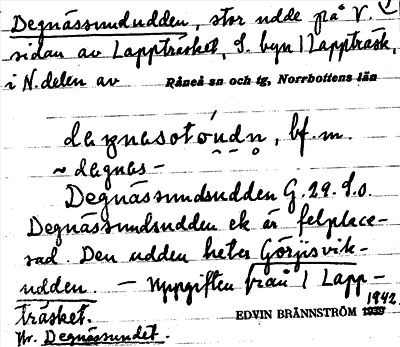 Degnässundudden, stor udde på V.
sidan av Lappträsket, S. byn Lappträsk,
i N. delen av Råneå sn och tg, Norrbottens län
dagnasotóudn, bf. m.
~ dagnas-
Degnässundsudden G. 29. S.o.
Degnässundsudden ek är felplace-
rad. Den udden heter Görjisvik-
udden. — Uppgiften från Lapp-
träsket.
EDVIN BRÄNNSTRÖM 1942
Hr. Degnässundet.